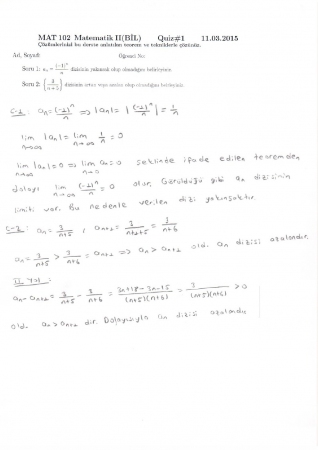 MAT 102 Matematik II(BİL) Quiz#1 11.03.2015
Çözümlerinizi bu derste anlatılan teorem ve tekniklerle çözünüz.
Ad, Soyad: Öğrenci No:
Soru 1: aₙ = (-1)ⁿ/n dizisinin yakınsak olup olmadığını belirleyiniz.
Soru 2: {3/(n+5)} dizisinin artan veya azalan olup olmadığını belirleyiniz.
C-1: aₙ = (-1)ⁿ/n ⇒ |aₙ| = |(-1)ⁿ/n| = 1/n
lim n→∞ |aₙ| = lim n→∞ 1/n = 0
lim n→∞ |aₙ| = 0 ⇒ lim n→∞ aₙ = 0 şeklinde ifade edilen teoremden
dolayı lim n→∞ (-1)ⁿ/n = 0 olur. Görüldüğü gibi aₙ dizisinin
limiti var. Bu nedenle verilen dizi yakınsaktır.
C-2: aₙ = 3/(n+5), aₙ₊₁ = 3/(n+1+5) = 3/(n+6)
aₙ = 3/(n+5) > 3/(n+6) = aₙ₊₁ ⇒ aₙ > aₙ₊₁ old. aₙ dizisi azalandır.
II. yol:
aₙ - aₙ₊₁ = 3/(n+5) - 3/(n+6) = (3n+18-3n-15)/((n+5)(n+6)) = 3/((n+5)(n+6)) > 0
old. aₙ > aₙ₊₁ dir. Dolayısıyla aₙ dizisi azalandır